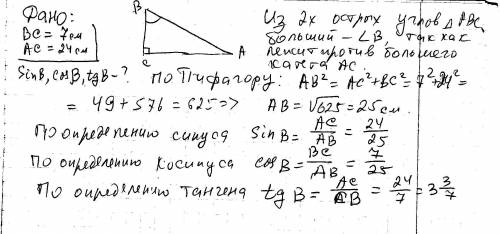 Дано:
BC = 7см
AC = 24см
SinB, cosB, tgB - ?
B
C
A
Из 2х острых углов △ ABC
больший - ∠B, так как
лежит против большего
катета AC.
По Пифагору: AB² = AC² + BC² = 7² + 24² =
= 49 + 576 = 625 => AB = √625 = 25 см.
По определению синуса sin B = AC/AB = 24/25
По определению косинуса cos B = BC/AB = 7/25
По определению тангенса tg B = AC/CB = 24/7 = 3 3/7